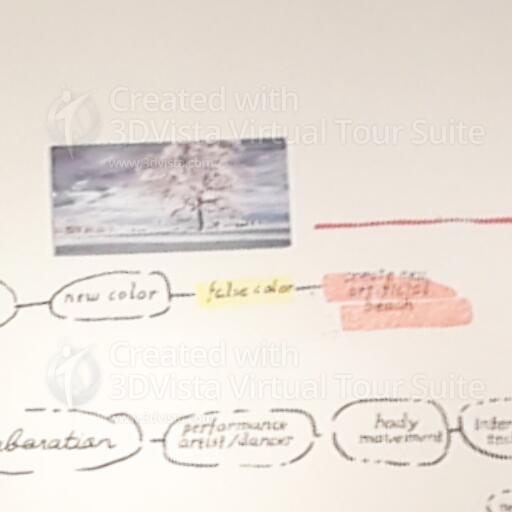 Created with
3DVista Virtual Tour Suite
www.3dvista.com
new color
false color
create new
artificial
beach
Created with
3DVista Virtual Tour Suite
www.3dvista.com
performance
artist/dancer
body
movement